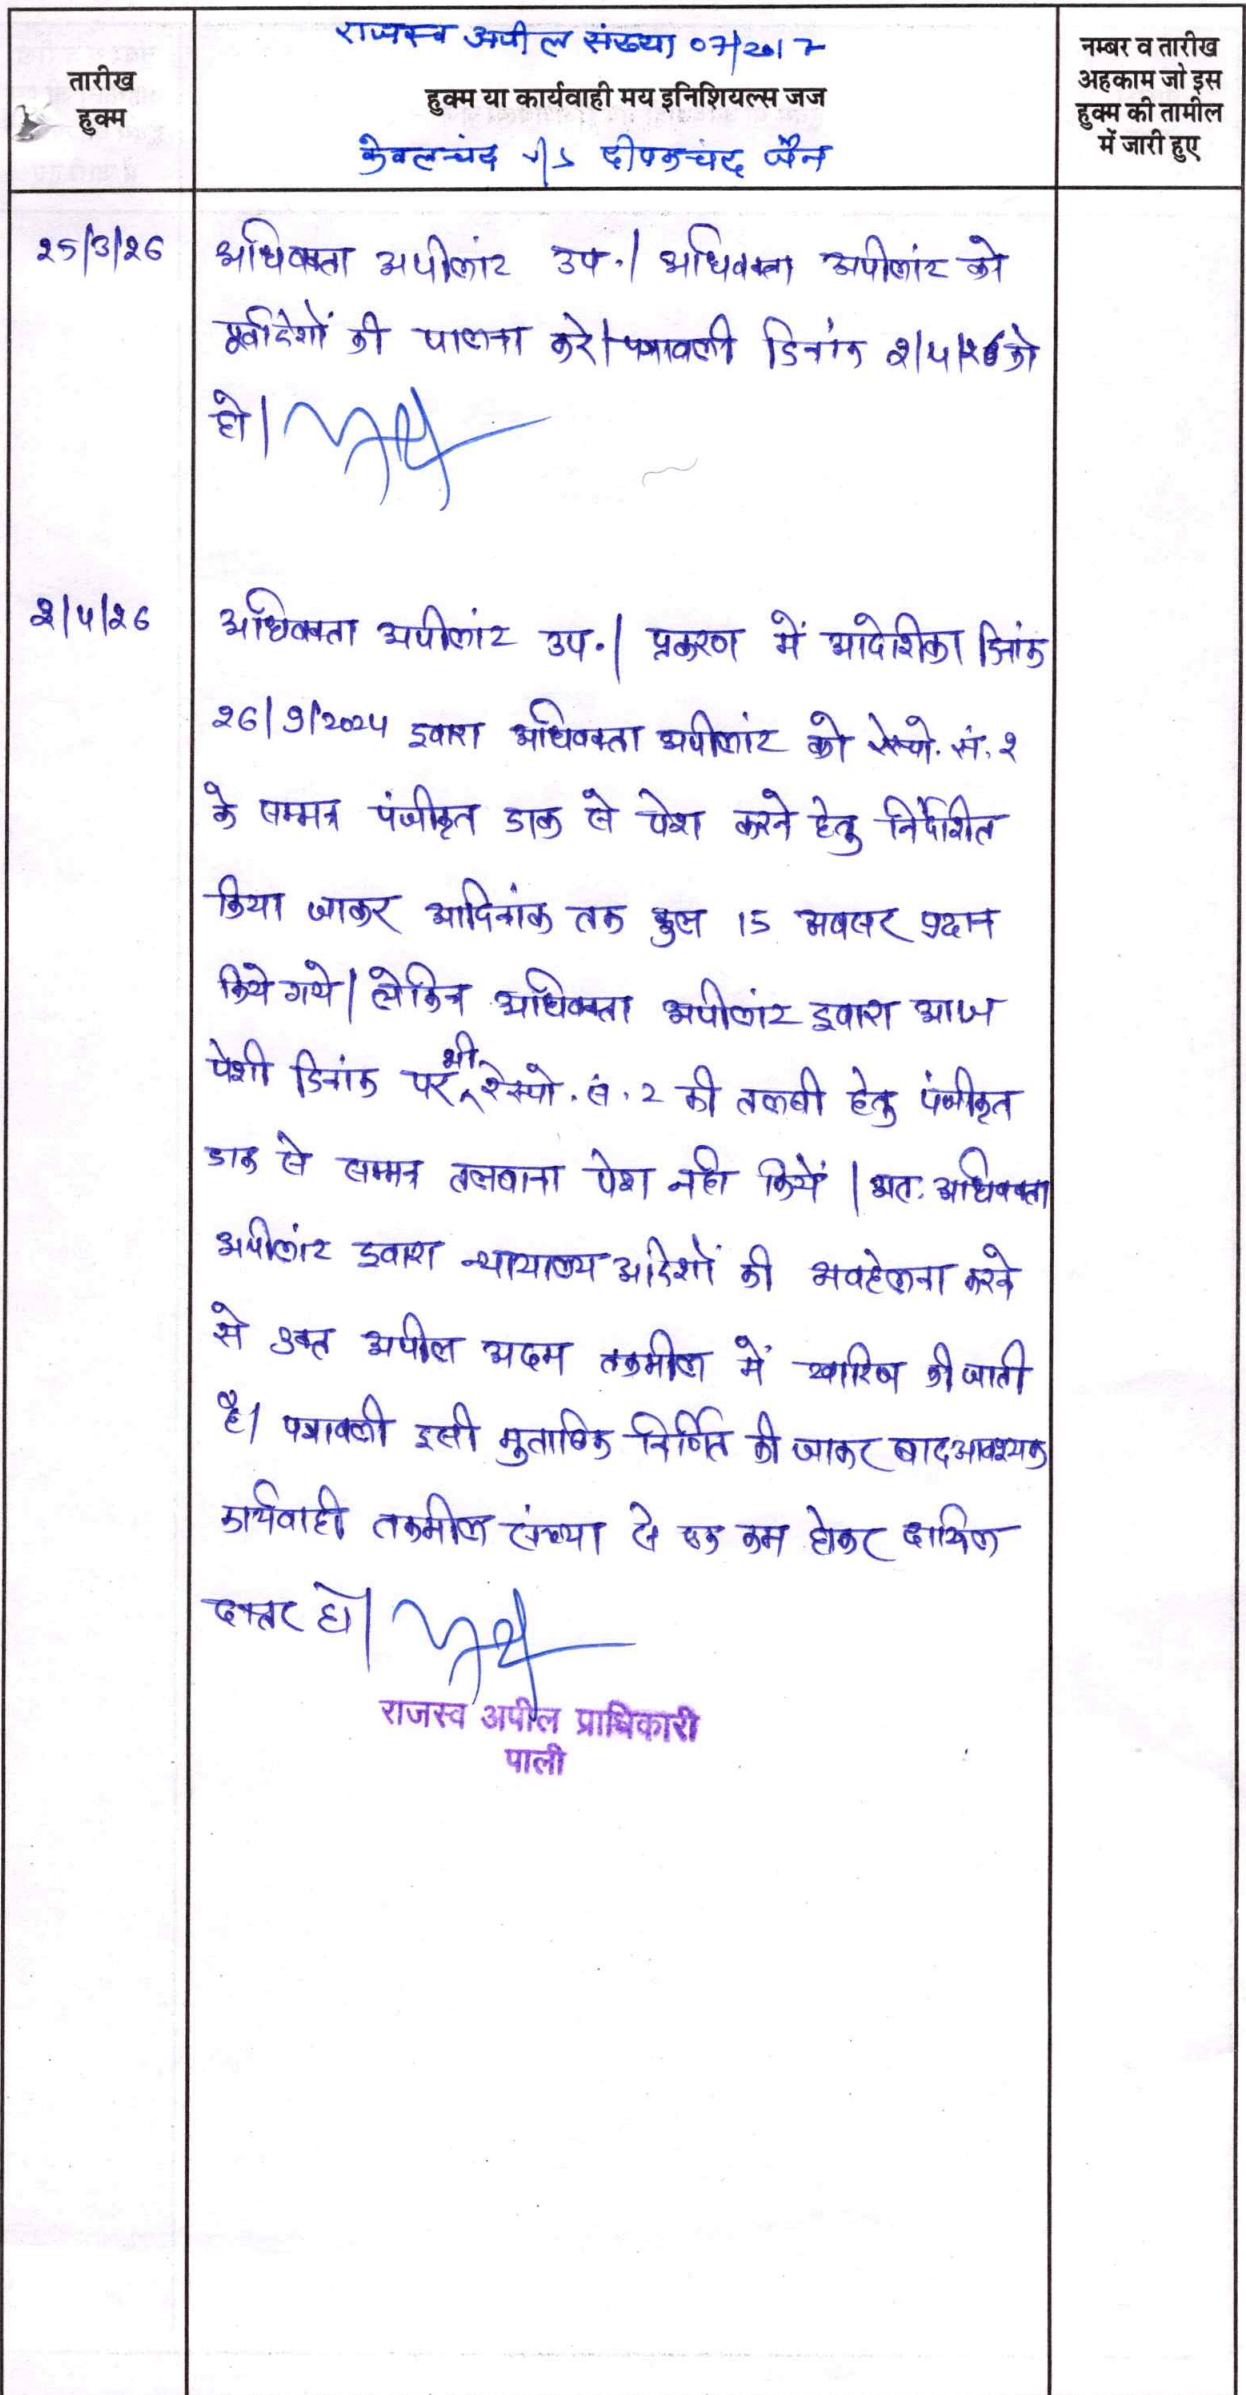 राजस्व अपील संख्या 07/2017
तारीख
हुक्म
हुक्म या कार्यवाही मय इनिशियल्स जज
केवलचंद v/s दीपकचंद जैन
नम्बर व तारीख
अहकाम जो इस
हुक्म की तामील
में जारी हुए
25/3/26
अधिवक्ता अपीलांट उप.। अधिवक्ता अपीलांट को
पूर्वादेशों की पालना करे। पत्रावली दिनांक 2/4/26 को
हो।
2/4/26
अधिवक्ता अपीलांट उप.। प्रकरण में आदेशिका दिनांक
26/9/2024 द्वारा अधिवक्ता अपीलांट को रेस्पो. सं. 2
के सम्मन पंजीकृत डाक से पेश करने हेतु निर्देशित
किया जाकर आदिनांक तक कुल 15 अवसर प्रदान
किये गये। लेकिन अधिवक्ता अपीलांट द्वारा आज
पेशी दिनांक पर भी रेस्पो. सं. 2 की तलबी हेतु पंजीकृत
डाक से सम्मन तलवाना पेश नही किये। अत: अधिवक्ता
अपीलांट द्वारा न्यायालय आदेशों की अवहेलना करने
से उक्त अपील अदम तकमील में खारिज की जाती
है। पत्रावली इसी मुताबिक निर्णित की जाकर बाद आवश्यक
कार्यवाही तकमील संख्या से एक कम होकर दाखिल
दफ्तर हो।
राजस्व अपील प्राधिकारी
पाली